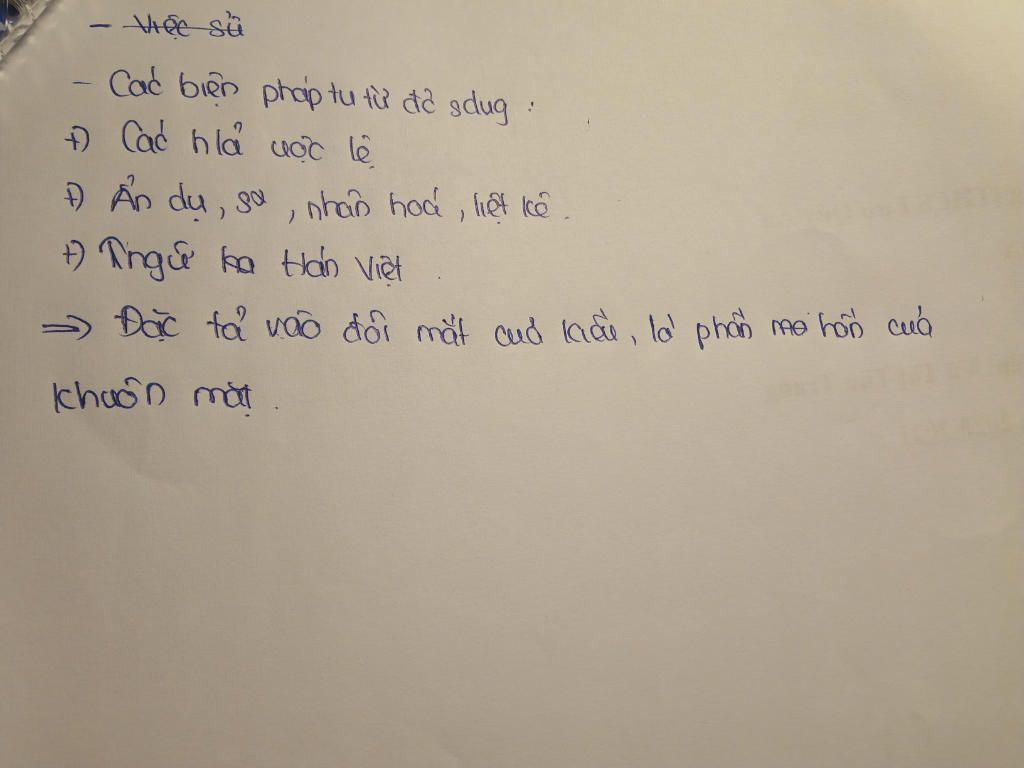 - Việc sử
- Các biện pháp tu từ đc sdụg :
+) Các h/ả ước lệ
+) Ẩn dụ, so , nhân hoá, liệt kê.
+) Hán Việt.
=> Đặc tả vào đôi mắt của Kiều, là phần hồn của
khuôn mặt.